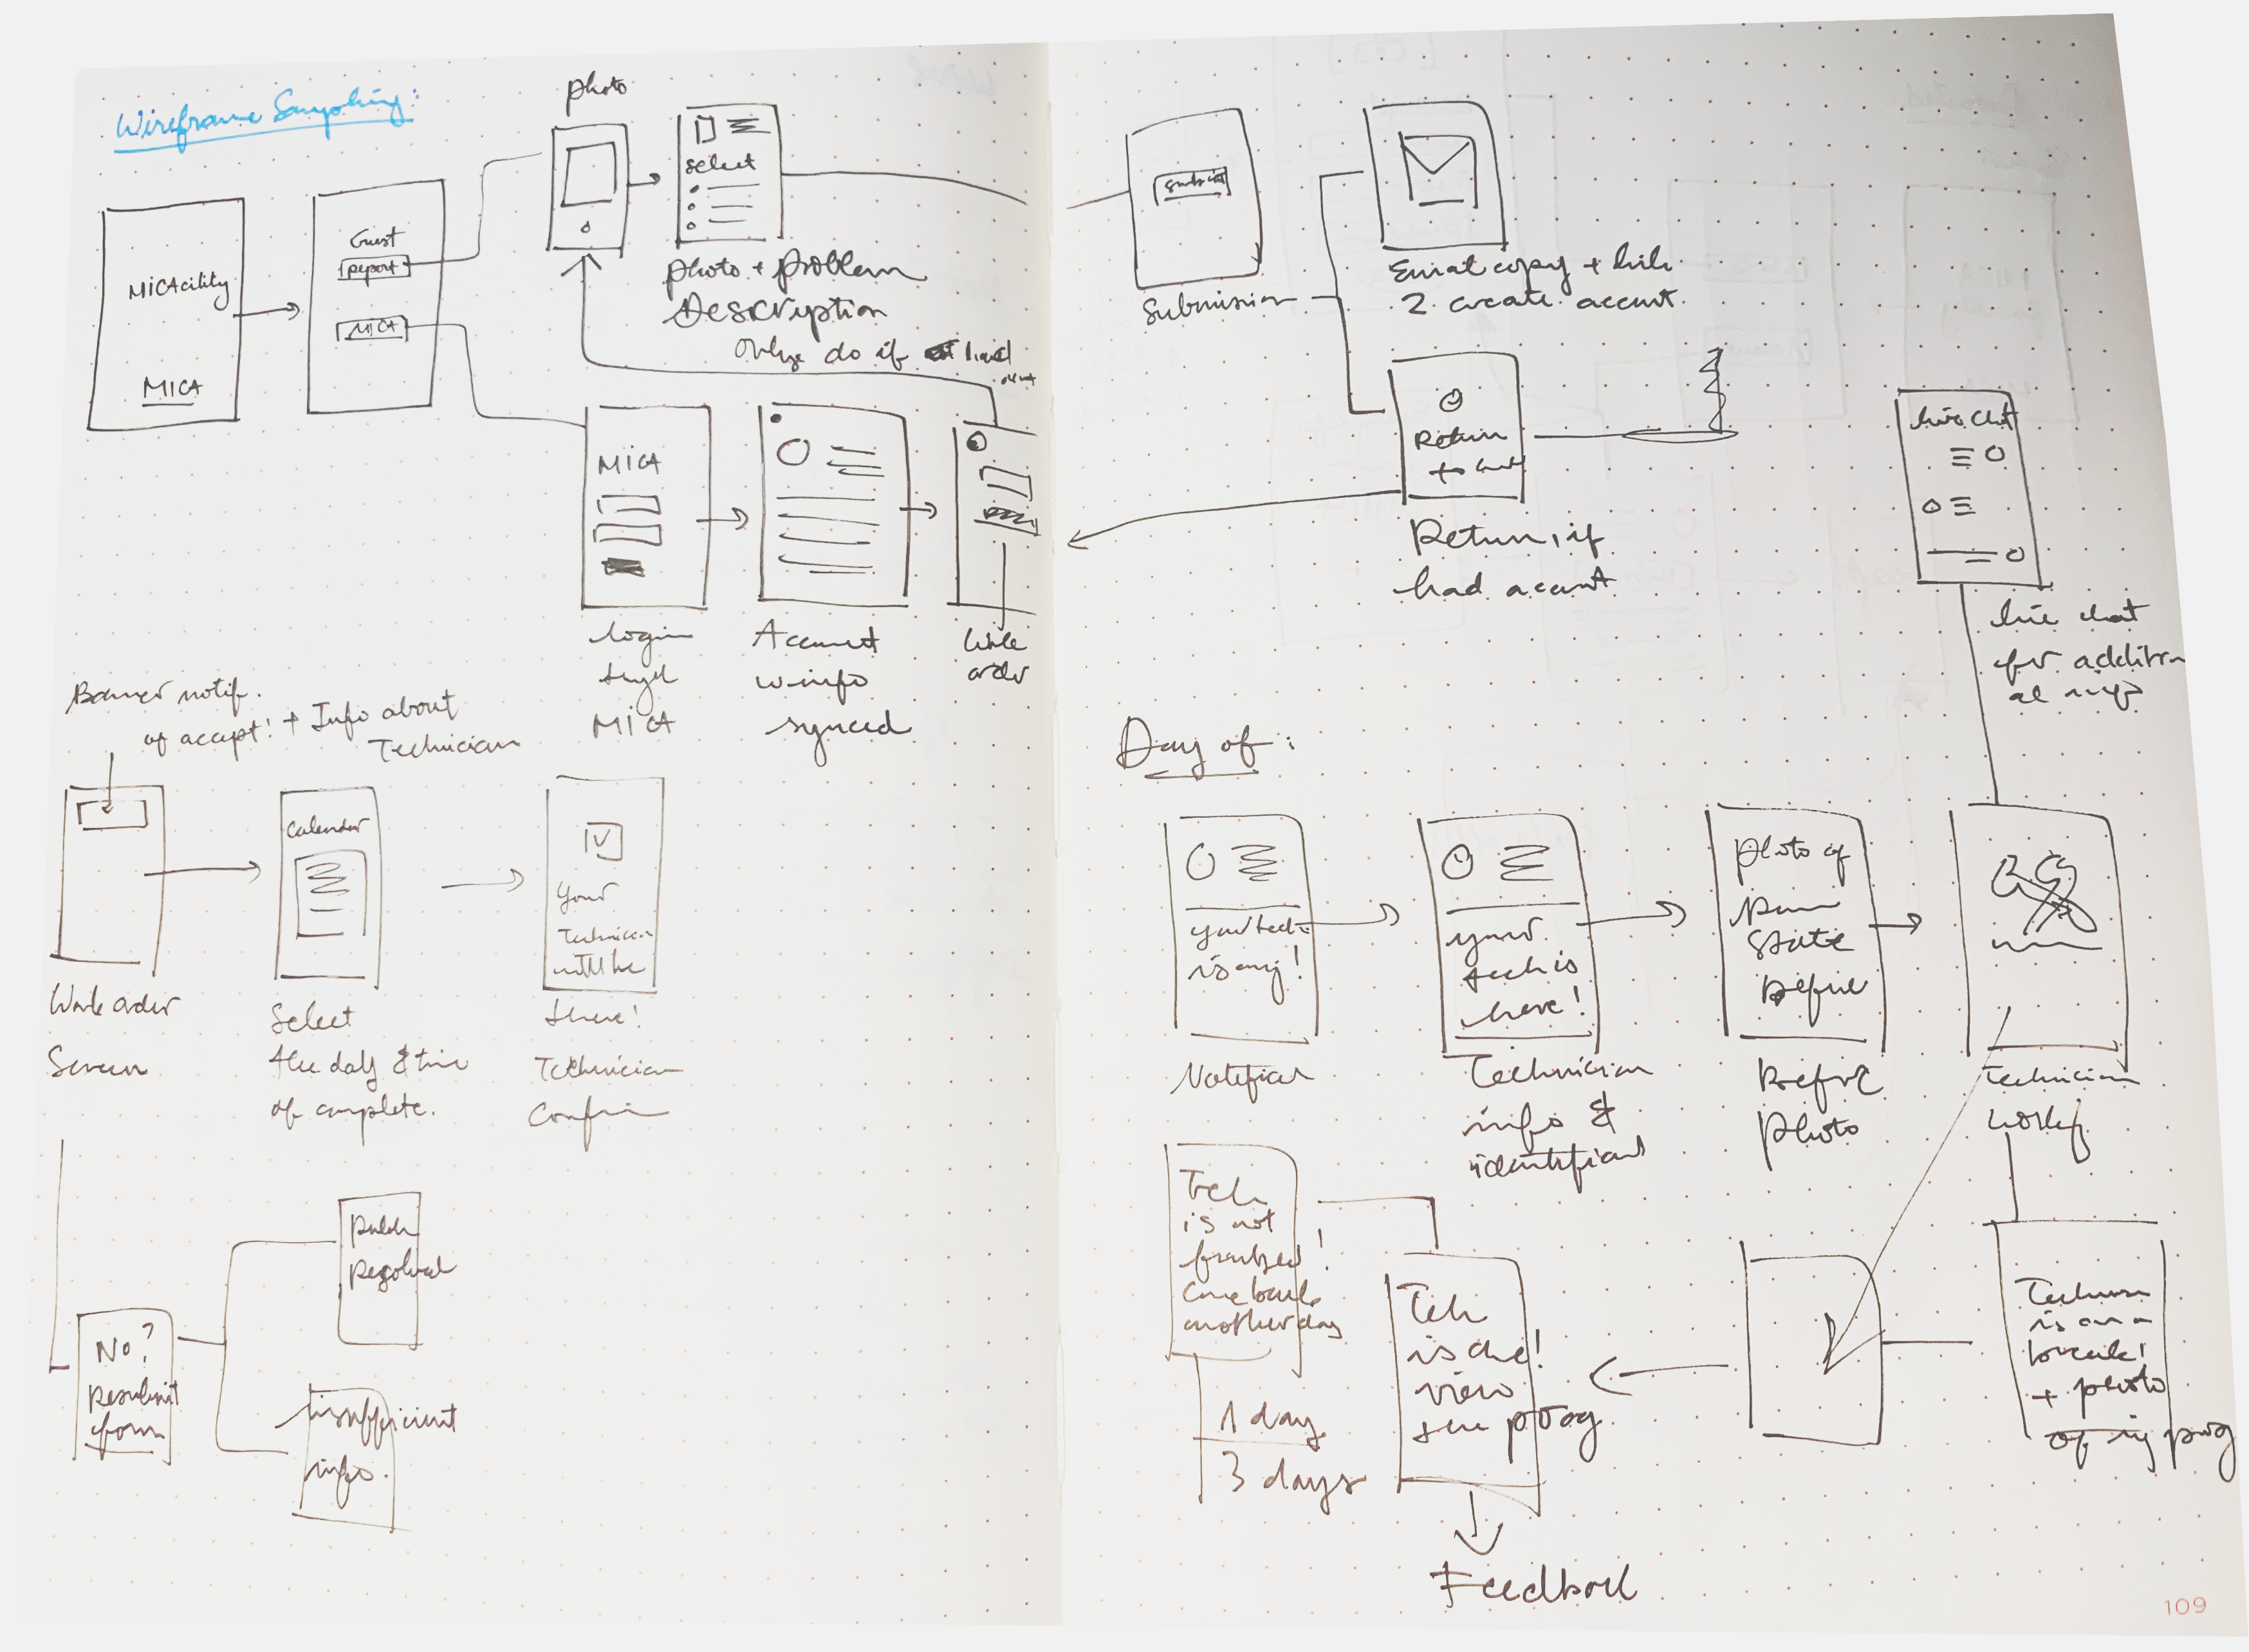 Wireframe Sampling:
MICAcility
MICA
Guest
report
MICA
photo
select
photo + problem
Description
Only do if
MICA
login
MICA
Account
w info
synced
Work
order
Banner notif.
of accept! + Info about
Technician
Work order
Screen
Calendar
Select
the day & time
of complete.
Your
Technician
will be
there!
Technician
Confirm
No?
Resubmit
form
Resolved
Insufficient
info.
Submit
Submission
Email copy + link
2 create account
Return
to
Return, if
had account
live chat
live chat
for addition
al info
Day of:
your tech
is omj!
Notification
your
tech is
here!
Technician
info &
identification
photo of
State
Before
Before
photo
Technician
working
Technician
is on a
break!
+ photo
of in prog
Tech
is not
finished!
Come back
another day
1 day
3 days
Tech
is done!
view
the prog
Feedback
109